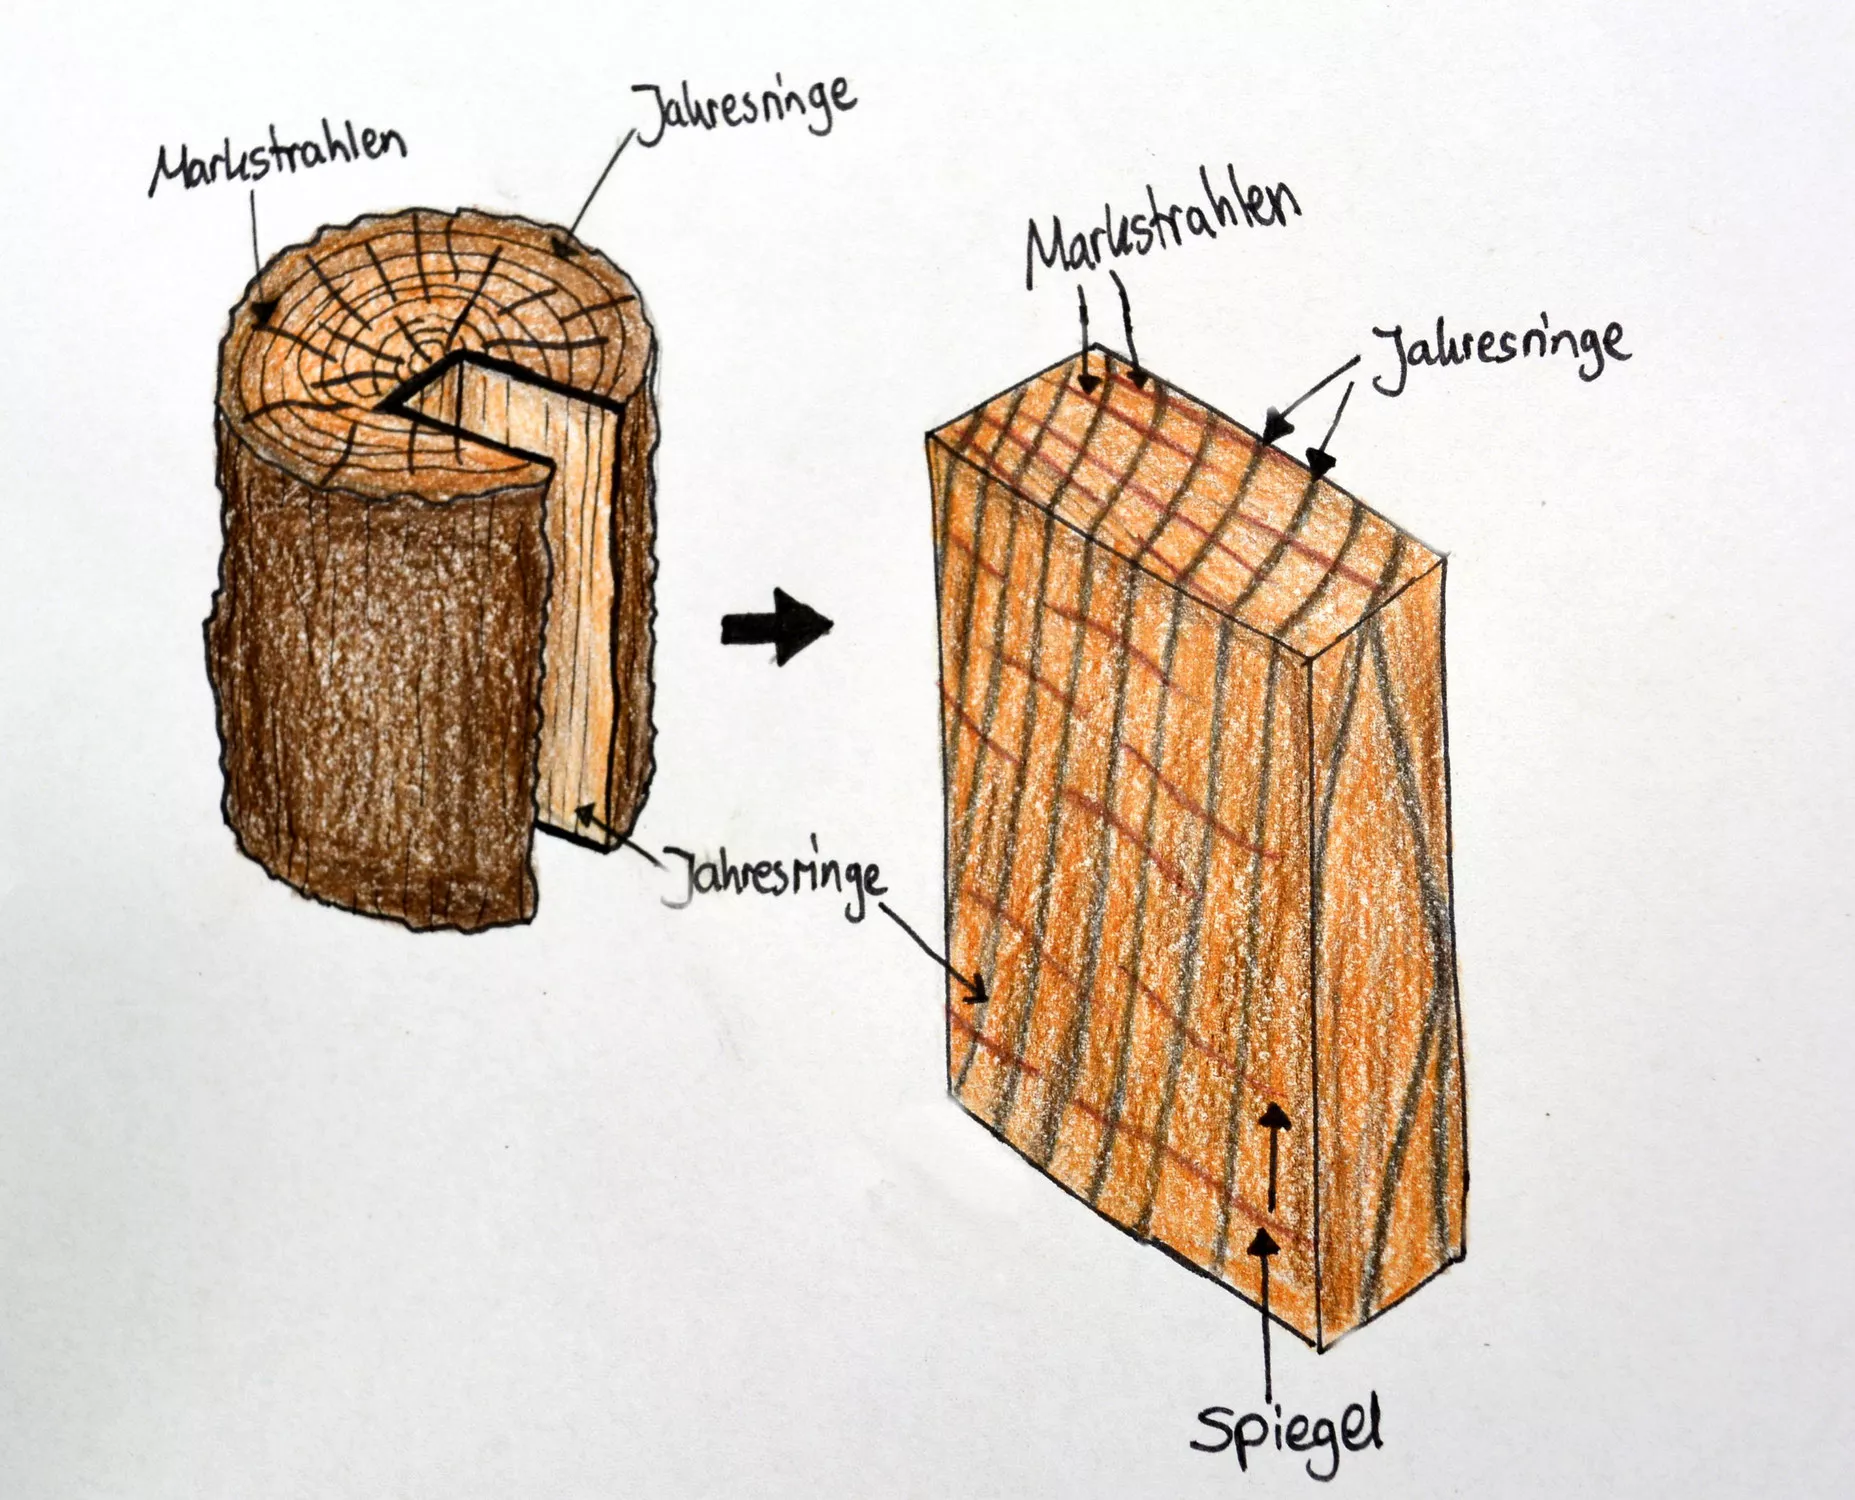 Jahresringe
Markstrahlen
Markstrahlen
Jahresringe
Jahresringe
Spiegel